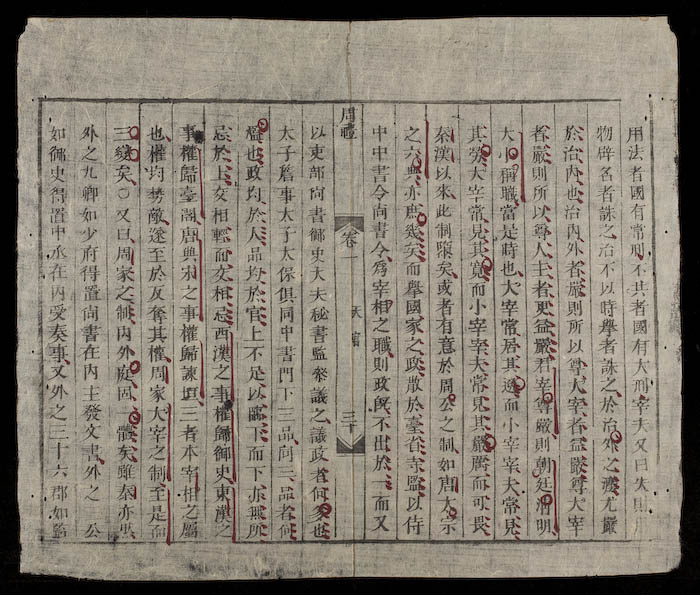 用法者國有常刑不共者國有大刑宰夫又曰失則用
物辟名者誅之治不以時舉者誅之於治外之法尤嚴
於治內也治內外者嚴則所以尊大宰者益嚴尊大宰
者嚴則所以尊人主者更益嚴君宰尊嚴則朝廷清明
大小稱職當是時也大宰常居其逸而小宰宰夫常見
其勞大宰常見其寬而小宰宰夫常見其嚴厲而可畏
秦漢以來此制隳矣或者有意於周公之制如唐太宗
之六典亦庶幾矣而舉國家之政散於臺省寺監以侍
中中書令尚書令為宰相之職則政既不出於一而又
周禮 卷一 天官 三十
以吏部尚書御史大夫秘書監參議之議政者何多也
太子詹事太子太保俱同中書門下三品同三品者何
濫也政均於人品均於官上不足以臨下而下亦無所
忌於上交相輕而交相忌西漢之事權歸御史東漢之
事權歸臺閣唐與宋之事權歸諫垣三者本宰相之屬
也權均勢敵遂至於反奪其權周家大宰之制至是而
三變矣○又曰周家之制內外庭固一體矣雖秦亦然
外之九卿如少府得置尚書在內主發文書外之 公
如御史得置中丞在內受奏事又外之三十六郡如監